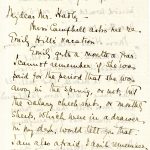 My dear Mr. Hasty,
Miss Campbell asks me re
Emily Hill's vacation.
Emily gets a month a year.
I cannot remember if she was
paid for the period that she was
away in the spring, or not, but
the salary check-stubs, or monthly
sheets, which were in a drawer
in my desk, would tell you that.
I am also afraid I don't remember